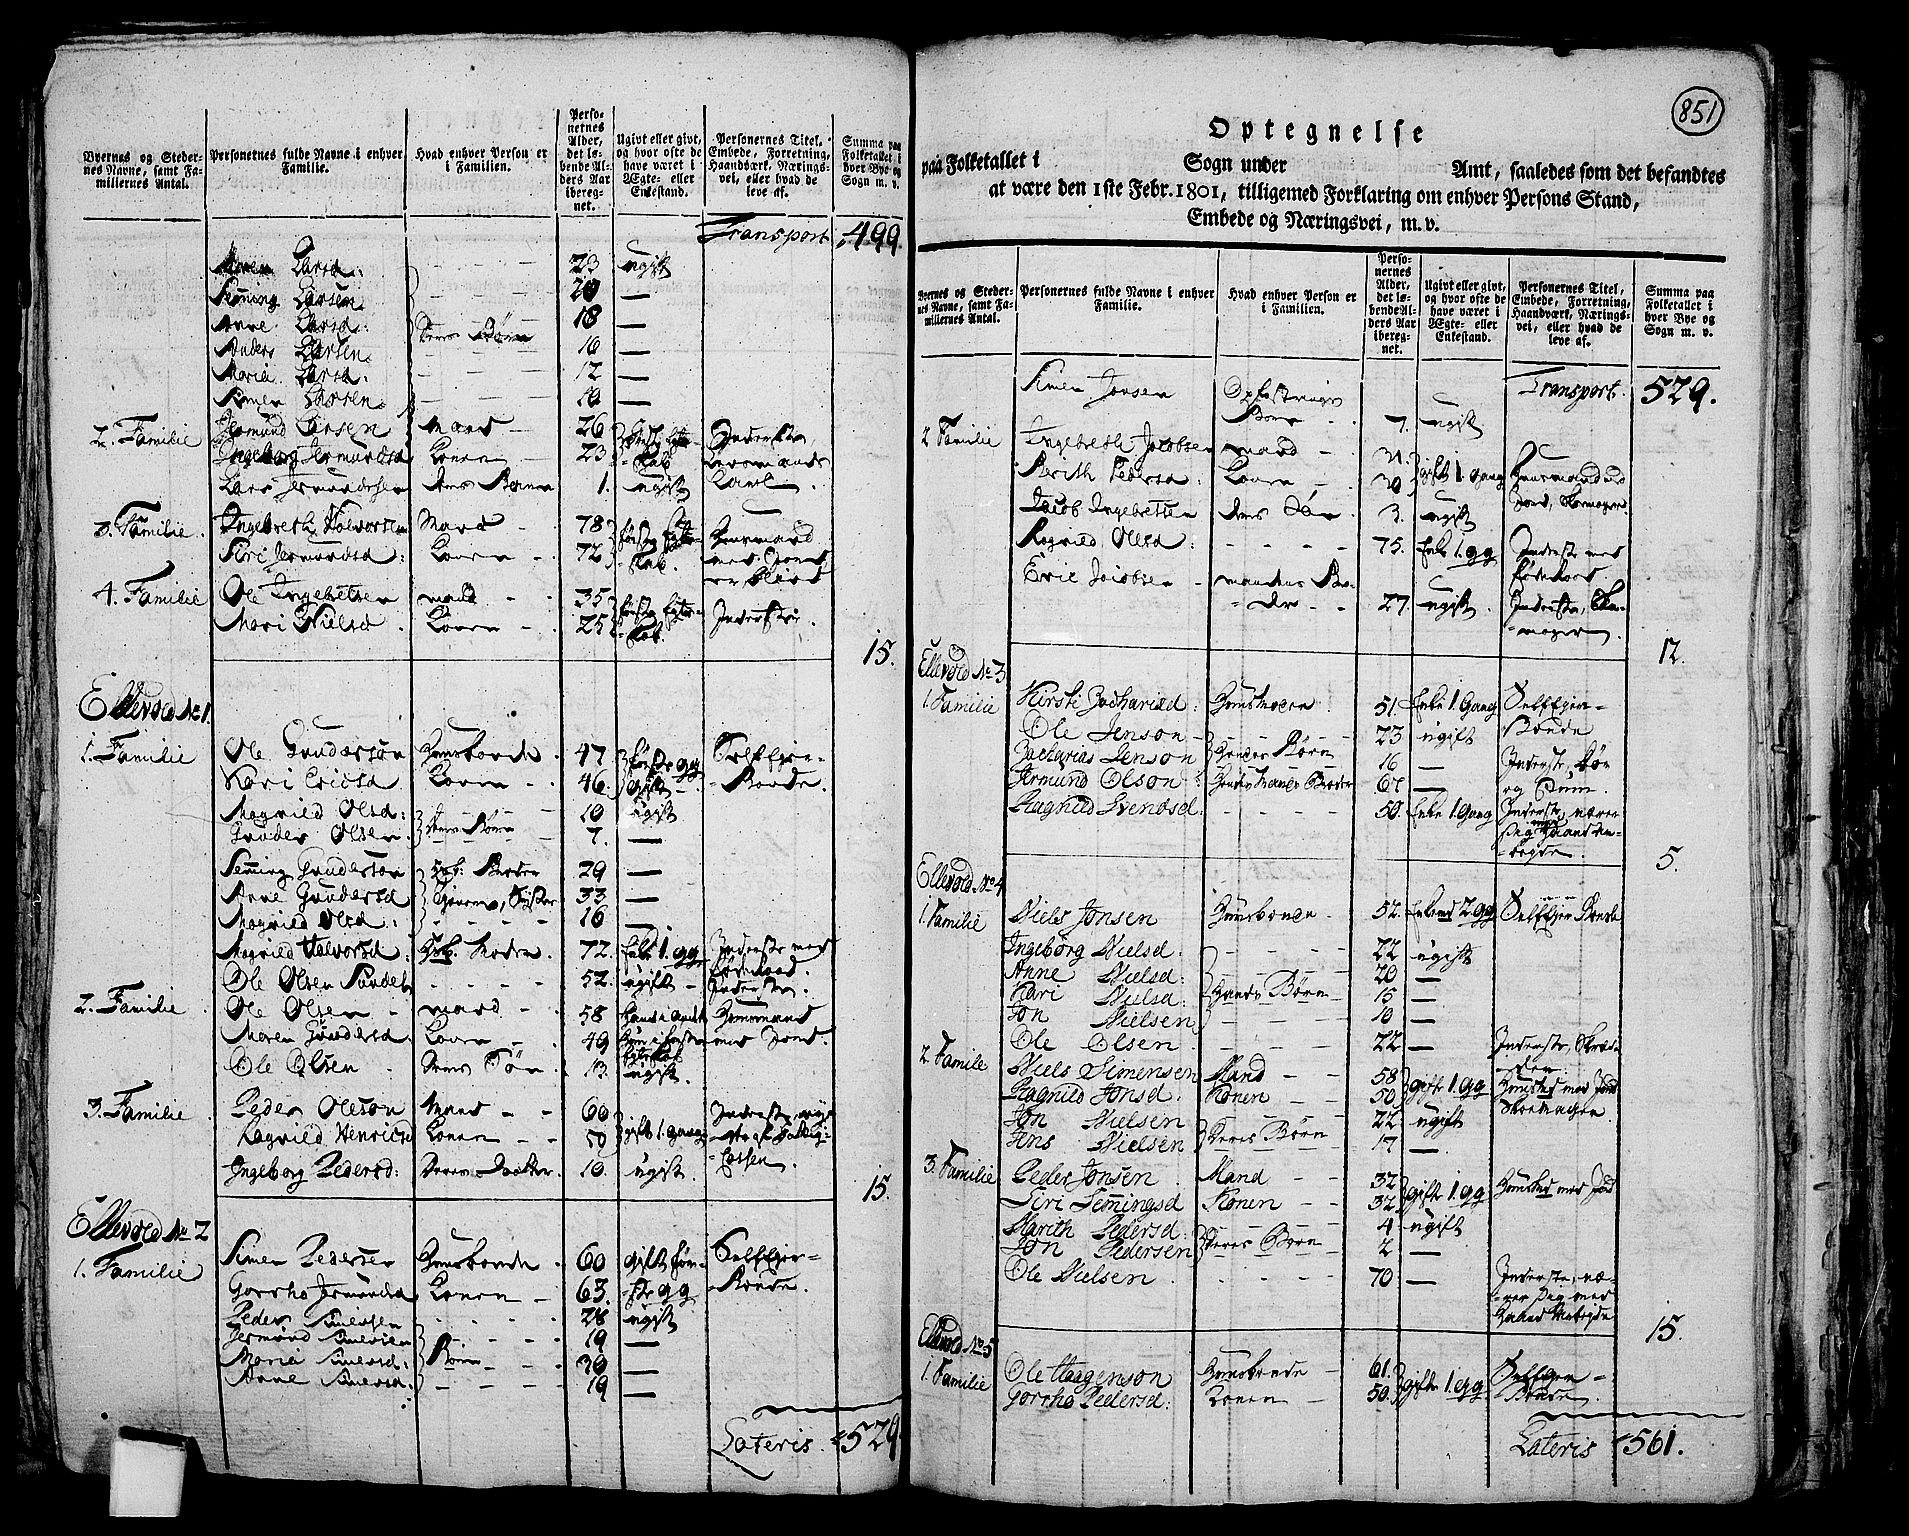 Byernes og Steder-
nes Navne, samt Fa-
miliernes Antal.
Personernes fulde Navne i enhver
Familie.
Hvad enhver Person er
i Familien.
Perso-
nernes
Alder,
det lø-
bende Al-
ders Aar
ibereg-
net.
Ugivt eller givt,
og hvor ofte de
have været i
Ægte- eller
Enkestand.
Personernes Titel,
Embede, Forretning,
Haandværk, Nærings-
vei, eller hvad de
leve af.
Summa paa
Folketallet i
hver Bye og
Sogn m. v.
Transport 499.
Maren Larsd: 23 ugift
Semming Larsen 20 —
Anne Larsd: Deres Børn 18 —
Anders Larsen 16 —
Maria Larsd: 12 —
Simen Larsen
2. Familie Jermund Larsen Mand 26
Ingeborg Jermundsd Konen 23
Lars Jermundsen 1. ugift
3. Familie Ingebreth Halvorsen Mand 78
Siri Jermundsd: Konen 72
4. Familie Ole Ingebretsen mand 35
Mari Nielsd Konen 25
15.
Ellevold No 1.
1. Familie Ole Gundersøn Huusbonde 47
Kari Ericsd Konen 46
Magnild Olsd: 10 ugift
Gunder Olsen Deres Børn 7. —
Semming Gundersøn 29 —
Anne Gundersd 33 —
Magnild Olsd: 16 —
Magnild Halvorsd: Moder 72. Enke 1. gg
Ole Olsen 52. ugift
2. Familie Ole Olsen mand 58
Maren Gundersd Konen 49
Ole Olsen Deres Søn 13. ugift
3. Familie Peder Olesøn Mand 60
Ragnild Henricsd Konen 50 gift 1. gang
Ingeborg Pedersd: Deres Datter 10. ugift
15.
Ellevold No 2
1. Familie Simen Pedersen Huusbonde 60 gift før- Selfeier-
Gorrho Jermundsd Konen 63. ste gg Bonde
Peder Simensen 28 ugift
Jermund Simensen 19 —
Maria Simensd: Børn 30 —
Anne Simensd: 19 —
Lateris 529
851
Optegnelse
paa Folketallet i Sogn under Amt, saaledes som det befandtes
at være den 1ste Febr. 1801, tilligemed Forklaring om enhver Persons Stand,
Embede og Næringsvei, m. v.
Byernes og Steder-
nes Navne, samt Fa-
miliernes Antal.
Personernes fulde Navne i enhver
Familie.
Hvad enhver Person er
i Familien.
Perso-
nernes
Alder,
det lø-
bende Al-
ders Aar
ibereg-
net.
Ugivt eller givt,
og hvor ofte de
have været i
Ægte- eller
Enkestand.
Personernes Titel,
Embede, Forretning,
Haandværk, Nærings-
vei, eller hvad de
leve af.
Summa paa
Folketallet i
hver Bye og
Sogn m. v.
Transport. 529.
Simen Jonsen Opfostrings
Barn 7. ugift
2 Familie Ingebreth Jacobsen mand
Berith Pedersd: Konen 30 gift 1. gang
Jacob Ingebretsen deres Søn 3. ugift
Ragnild Olsd: 75. Enke 1. gg
Eric Jacobsen mandens Bro-
der 27. ugift
12.
Ellevold No 3
1. Familie Kirsti Zachariæd: Huusmoder 51. Enke 1. Gang Selfeier-
Ole Jenson 23 ugift Bonde
Zacharias Jenson Hendes Børn 16 —
Jermund Olson Hendes Mands Broder 67 —
Ragnild Svendsd: 50. Enke 1. Gang
5.
Ellevold No 4
1. Familie Niels Jonsen Huusbonde 52. Enkemd 2 gg Selfeier Bonde
Ingeborg Nielsd. 22 ugift
Anne Nielsd: 20 —
Kari Nielsd: Hands Børn 15 —
Jon Nielsen 10 —
Ole Olsen 22 —
2. Familie Niels Simensen Mand 58
Ragnild Jonsd. Konen 50 gift 1. gg
Jon Nielsen 22 ugift
Jens Nielsen Deres Børn 17 —
3. Familie Peder Jonsen Mand 32
Siri Semmingsd Konen 32 gift 1. gg
Marith Pedersd. 4 ugift
Jon Pedersen Deres Børn 2 —
Ole Nielsen 70 —
15.
Ellevold No 5
1. Familie Ole Haagenson Huusbonde 61. Selfeier-
Gorrho Pedersd: Konen 50. gift 1. gg Bonde
Lateris 561.